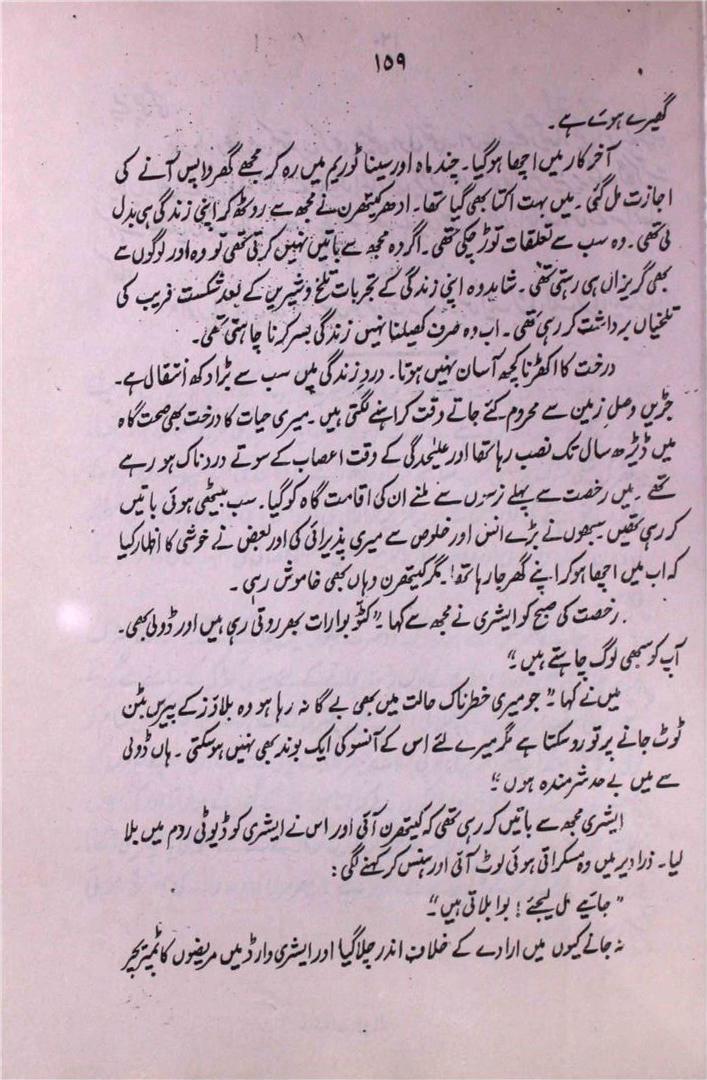 ۱۵۹
گھیرے ہوئے ہے۔
آخر کار میں اچھا ہوگیا۔ چند ماہ اور سینا ٹوریم میں رہ کر مجھے گھر واپس آنے کی
اجازت مل گئی۔ میں بہت اکتا بھی گیا تھا۔ ادھر کیتھرن نے مجھ سے روٹھ کر اپنی زندگی ہی بدل
لی تھی۔ وہ سب سے تعلقات توڑ چکی تھی۔ اگر وہ مجھ سے باتیں نہیں کرتی تھی تو وہ اور لوگوں سے
بھی گریزاں ہی رہتی تھی۔ شاید وہ اپنی زندگی کے تجربات تلخ و شیریں کے بعد شکست فریب کی
تلخیاں برداشت کر رہی تھی۔ اب وہ صرف کھیلنا نہیں زندگی بسر کرنا چاہتی تھی۔
درخت کا اکھڑنا کچھ آسان نہیں ہوتا۔ دردِ زندگی میں سب سے بڑا دکھ انتقال ہے۔
جڑیں وصلِ زمین سے محروم کئے جاتے وقت کراہنے لگتی ہیں۔ میری حیات کا درخت بھی صحت گاہ
میں ڈیڑھ سال تک نصب رہا تھا اور علیٰحدگی کے وقت اعصاب کے سوتے دردناک ہو رہے
تھے۔ میں رخصت سے پہلے نرسوں سے ملنے ان کی اقامت گاہ کو گیا۔ سب بیٹھی ہوئی باتیں
کر رہی تھیں سبھوں نے بڑے انس اور خلوص سے میری پذیرائی کی اور بعض نے خوشی کا اظہار کیا
کہ اب میں اچھا ہو کر اپنے گھر جا رہا تھا! مگر کیتھرن وہاں بھی خاموش رہی۔
رخصت کی صبح کو ایشری نے مجھ سے کہا "کٹو بوا رات بھر روتی رہی ہیں اور ڈولی بھی۔
آپ کو سبھی لوگ چاہتے ہیں۔"
میں نے کہا "جو میری خطرناک حالت میں بھی بے گانہ رہا ہو وہ بلاؤز کے پیرس بٹن
ٹوٹ جانے پر تو رو سکتا ہے مگر میرے لئے اس کے آنسو کی ایک بوند بھی نہیں ہوسکتی۔ ہاں ڈولی
سے میں بے حد شرمندہ ہوں"
ایشری مجھ سے باتیں کر رہی تھی کہ کیتھرن آئی اور اس نے ایشری کو ڈیوٹی روم میں بلا
لیا۔ ذرا دیر میں وہ مسکراتی ہوئی لوٹ آئی اور ہنس کر کہنے لگی:
"جائیے مل لیجئے! بوا بلاتی ہیں"
نہ جانے کیوں میں ارادے کے خلاف اندر چلا گیا اور ایشری وارڈ میں مریضوں کا ٹمپریچر